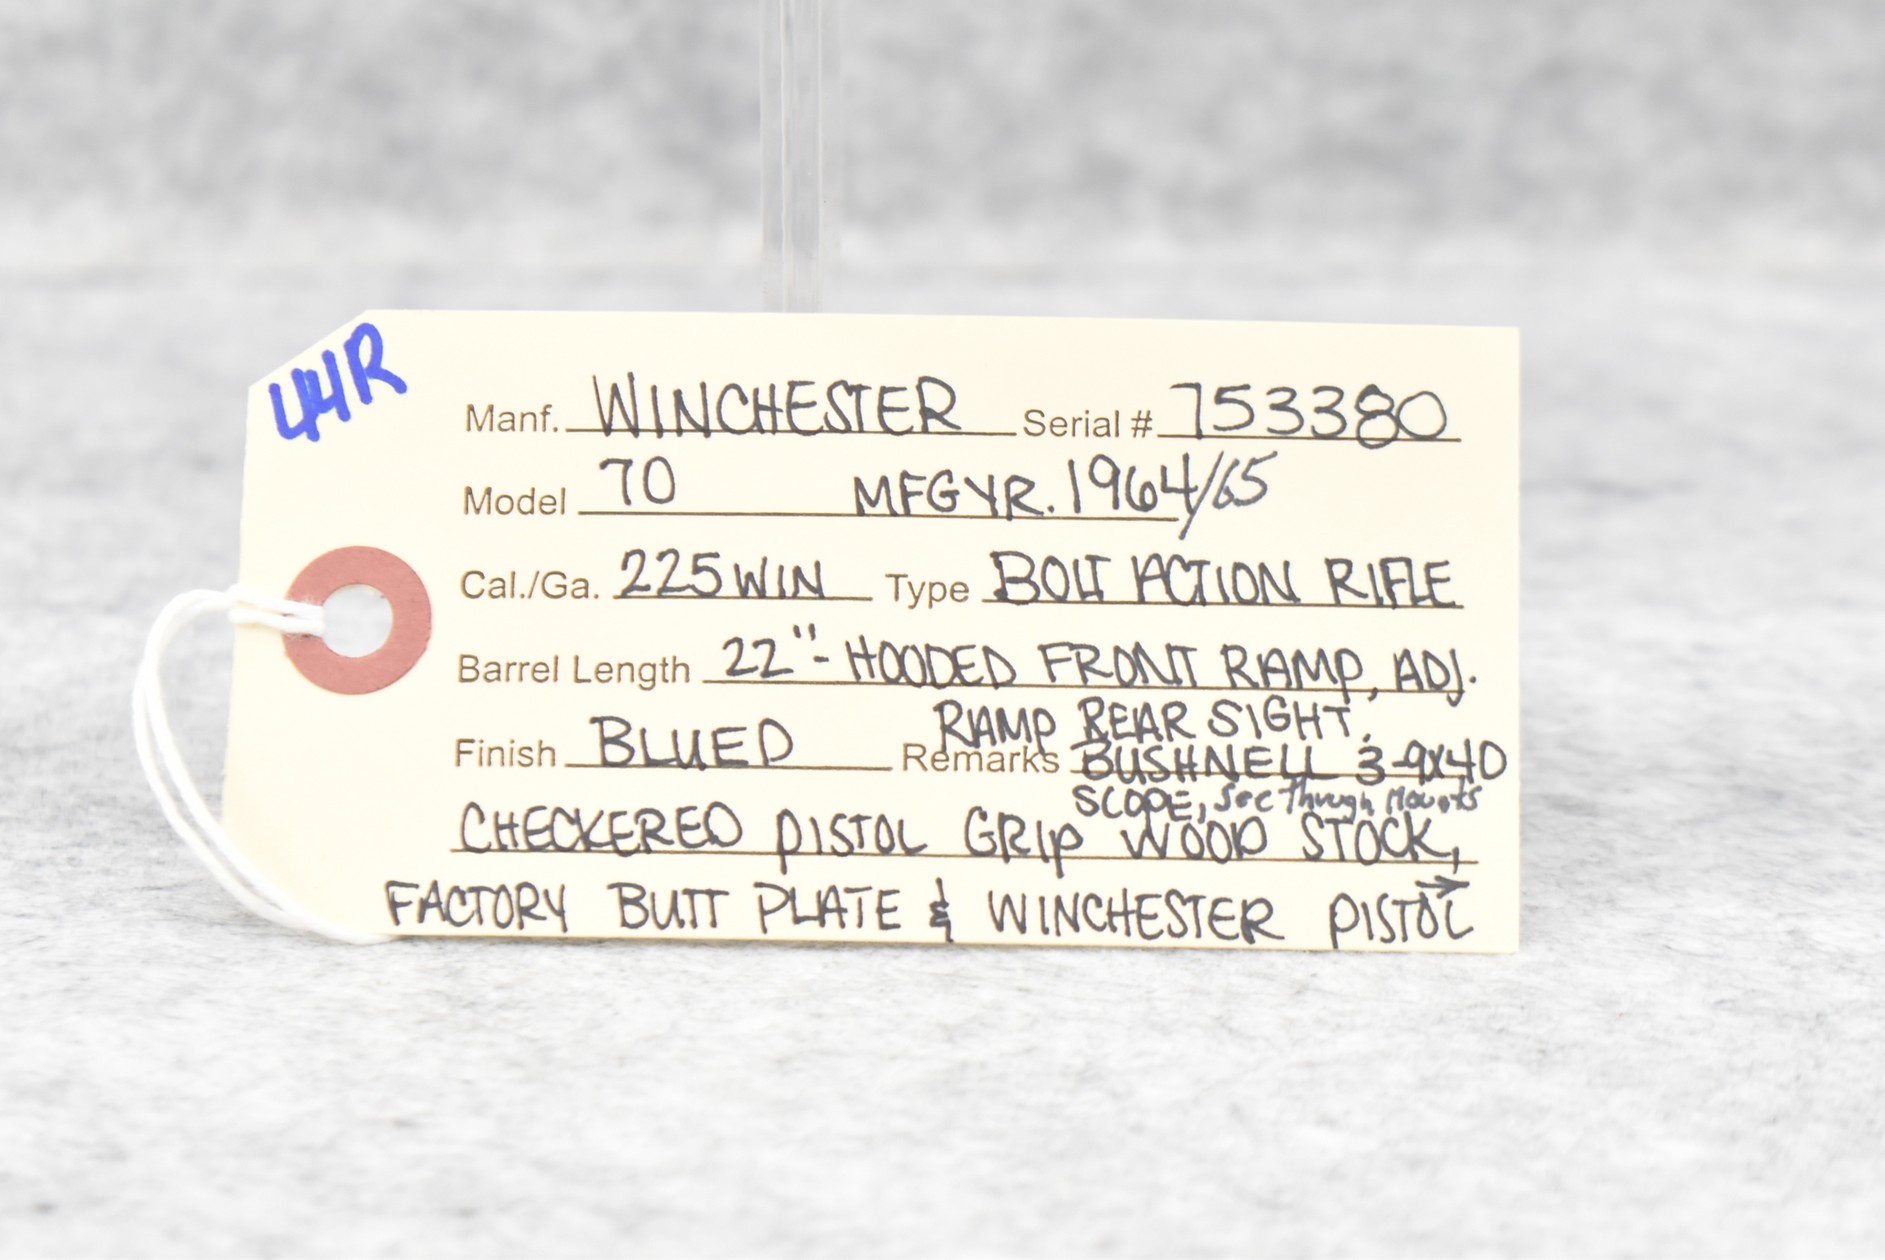 44R
Manf. WINCHESTER Serial # 753380
Model 70 MFG YR. 1964/65
Cal./Ga. 225 WIN Type BOLT ACTION RIFLE
Barrel Length 22"- HOODED FRONT RAMP, ADJ.
RAMP REAR SIGHT.
Finish BLUED Remarks BUSHNELL 3-9X40
SCOPE, See Through Mounts
CHECKERED PISTOL GRIP WOOD STOCK,
FACTORY BUTT PLATE & WINCHESTER PISTOL →